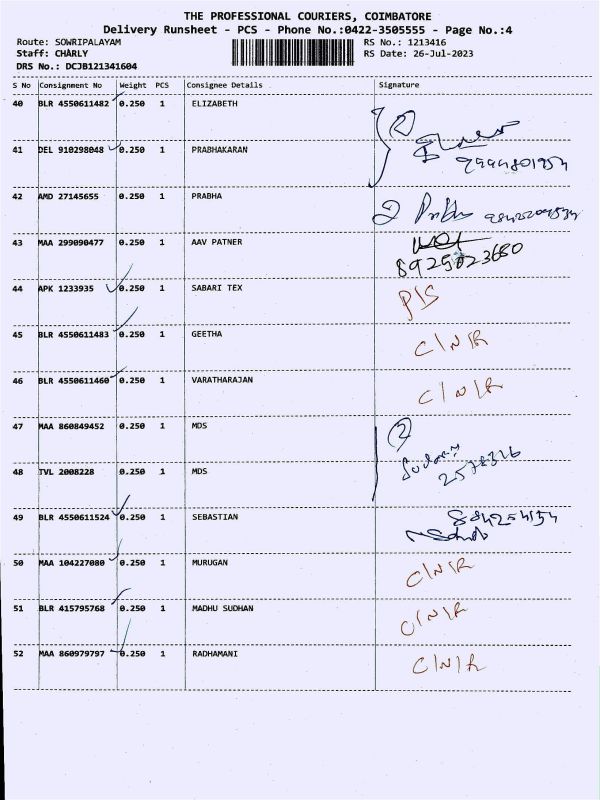 THE PROFESSIONAL COURIERS, COIMBATORE
Delivery Runsheet - PCS - Phone No.:0422-3505555 - Page No.:4
Route: SOWRIPALAYAM RS No.: 1213416
Staff: CHARLY RS Date: 26-Jul-2023
DRS No.: DCJB121341604
S No Consignment No Weight PCS Consignee Details Signature
40 BLR 4550611482 0.250 1 ELIZABETH
2
41 DEL 910298048 0.250 1 PRABHAKARAN
42 AMD 27145655 0.250 1 PRABHA
2
43 MAA 299090477 0.250 1 AAV PATNER
8925023680
44 APK 1233935 0.250 1 SABARI TEX P/S
45 BLR 4550611483 0.250 1 GEETHA C/N/R
46 BLR 4550611460 0.250 1 VARATHARAJAN C/N/R
47 MAA 860849452 0.250 1 MDS
2
48 TVL 2008228 0.250 1 MDS
49 BLR 4550611524 0.250 1 SEBASTIAN
50 MAA 104227080 0.250 1 MURUGAN C/N/R
51 BLR 415795768 0.250 1 MADHU SUDHAN C/N/R
52 MAA 860979797 0.250 1 RADHAMANI C/N/R